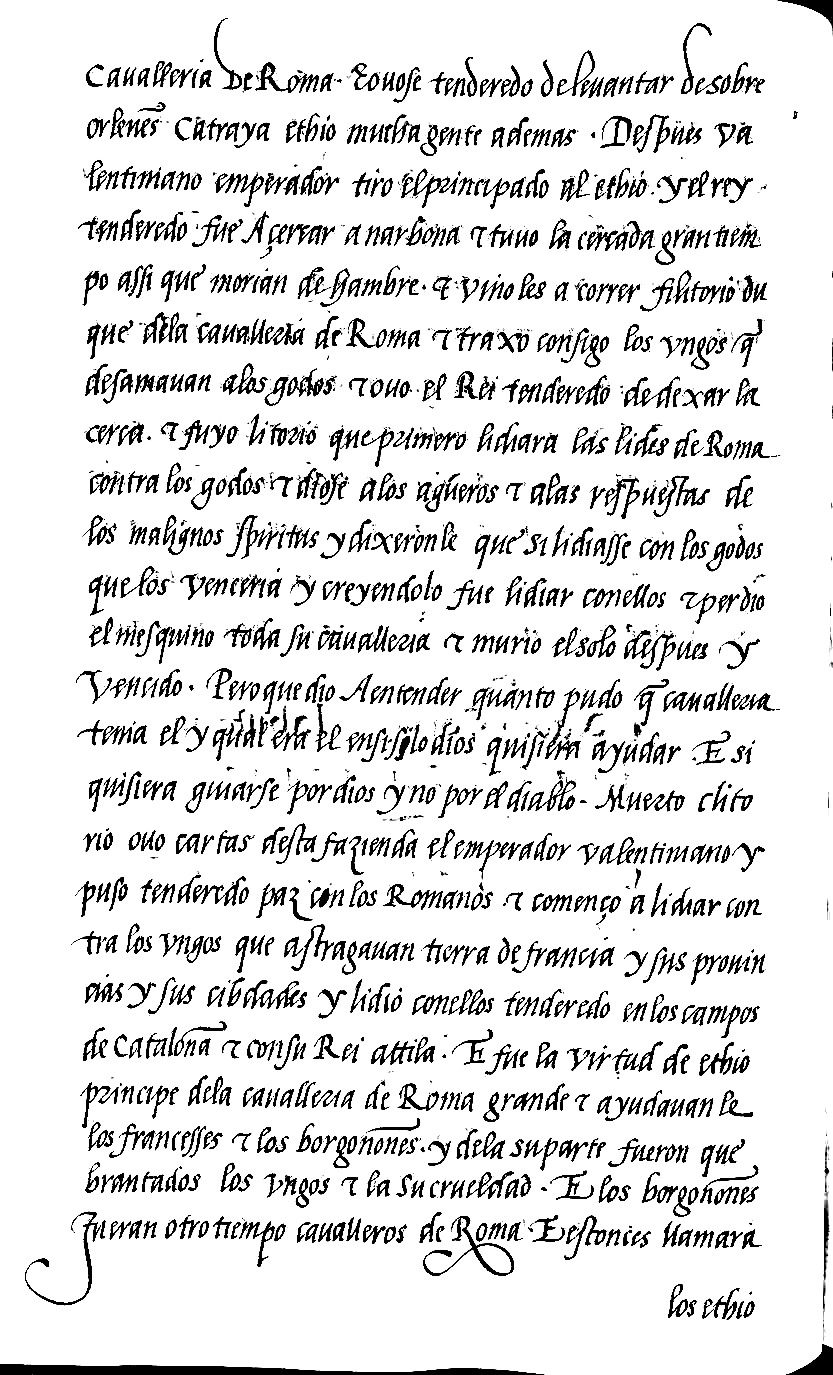 Cavalleria De Roma. Eovose tenderedo de levantar de sobre
orlenēs Catraya ethio mucha gente ademas. Despues va
lentiniano emperador tiro el principado al ethio. y el rey
tenderedo fue Açercar a narbona τ tuvo la cercada gran tiem
po assi que morian de hambre. τ vino les a correr filitorio du
que dela cavalleria de Roma τ traxo consigo los vngos q̄
desamavan alos godos τ ovo el Rei tenderedo de dexar la
cerca. τ fuyo litorio que primero lidiara las lides de Roma
contra los godos τ diose alos agueros τ alas respuestas de
los malignos spiritus y dixeronle que si lidiasse con los godos
que los venceria y creyendolo fue lidiar conellos τ perdio
el mesquino toda su cavalleria τ murio el solo despues y
Vencido. Pero que dio A entender quanto pudo q̄ cavalleria
tenia el y qual era el ensi si lo dios quisiera ayudar. E si
quisiera guiarse por dios y no por el diablo. Muerto clito
rio ovo cartas desta fazienda el emperador valentiniano y
puso tenderedo paz con los Romanos τ començo a lidiar con
tra los vngos que astragavan tierra de francia y sus provin
cias y sus cibdades y lidio conellos tenderedo en los campos
de Catalona τ con su Rei attila. E fue la virtud de ethio
principe dela cavalleria de Roma grande τ ayudavan le
los francesses τ los borgoñones. y dela su parte fueron que
brantados los vngos τ la su crueldad. E los borgoñones
fueran otro tiempo cavalleros de Roma E estonces llamara
los ethio